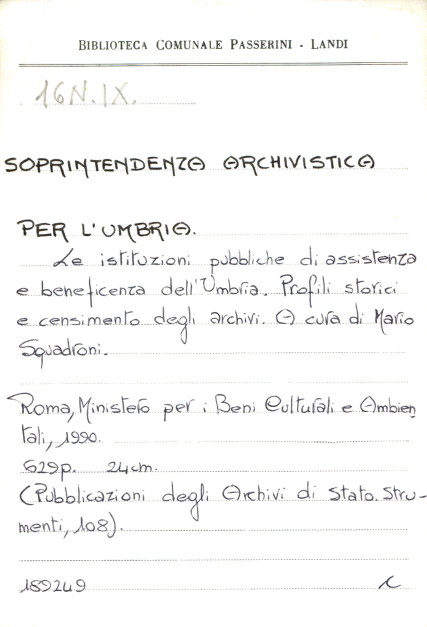 BIBLIOTECA COMUNALE PASSERINI - LANDI
16N.IX.
SOPRINTENDENZA ARCHIVISTICA
PER L'UMBRIA.
Le istituzioni pubbliche di assistenza
e beneficenza dell'Umbria. Profili storici
e censimento degli archivi. A cura di Mario
Squadroni.
Roma, Ministero per i Beni Culturali e Ambien
tali, 1990.
629p. 24cm.
(Pubblicazioni degli Archivi di Stato. Stru-
menti, 108).
189249